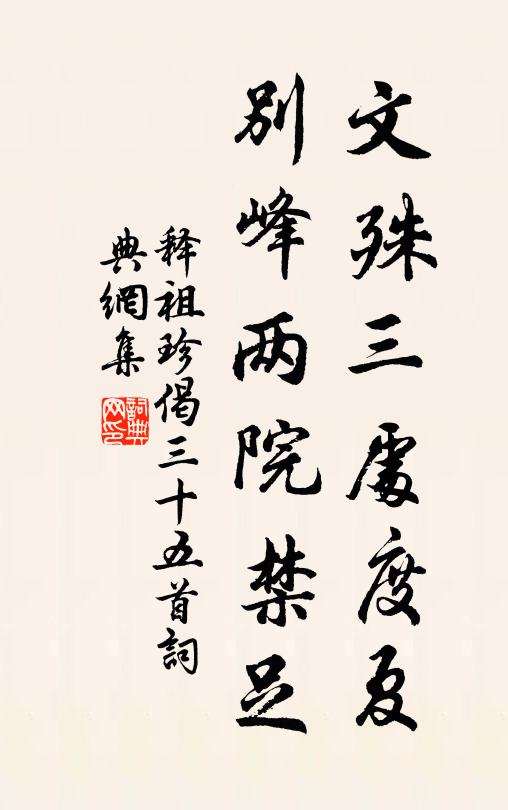 文殊三處度夏
別峰两院禁足
释祖珍偈三十五首詞
典網集
詞典網印